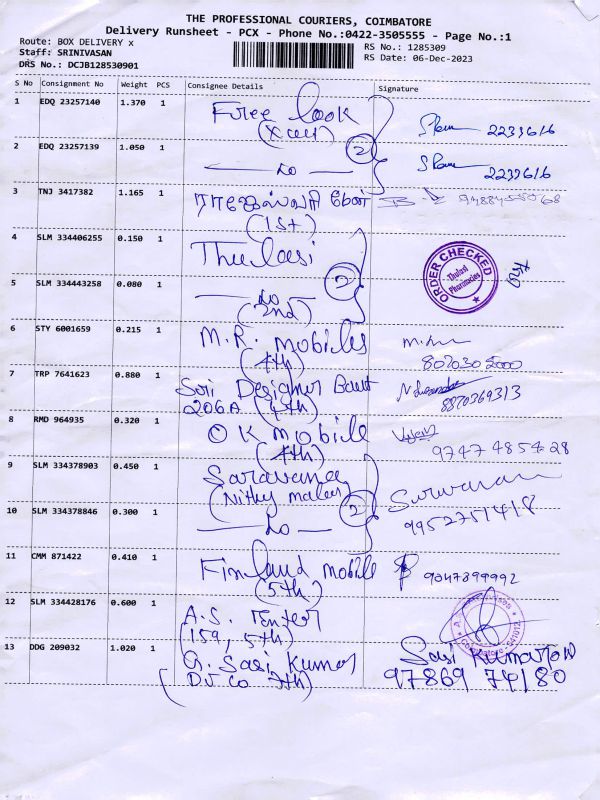 THE PROFESSIONAL COURIERS, COIMBATORE
Delivery Runsheet - PCX - Phone No.:0422-3505555 - Page No.:1
Route: BOX DELIVERY x
RS No.: 1285309
Staff: SRINIVASAN
RS Date: 06-Dec-2023
DRS No.: DCJB128530901
S No Consignment No Weight PCS Consignee Details Signature
1 EDQ 23257140 1.370 1 Free look
2233616
2 EDQ 23257139 1.050 1 2
2233616
3 TNJ 3417382 1.165 1
(1st)
4 SLM 334406255 0.150 1 Thulasi
ORDER CHECKED
Thulasi
Pharmacies
5 SLM 334443258 0.080 1 2
(2nd)
6 STY 6001659 0.215 1 M.R. mobiles
(4th)
7 TRP 7641623 0.880 1 Sri Designer
206A (4th) 8870369313
8 RMD 964935 0.320 1 OK mobile
(4th) 9747485428
9 SLM 334378903 0.450 1 Saravana
10 SLM 334378846 0.300 1 2
9952751418
11 CMM 871422 0.410 1 Finland mobile
(5th)
12 SLM 334428176 0.600 1 A.S.
(159, 5th)
13 DDG 209032 1.020 1 G. Sasi Kumar Sasi Kumar
7th) 97869 74180